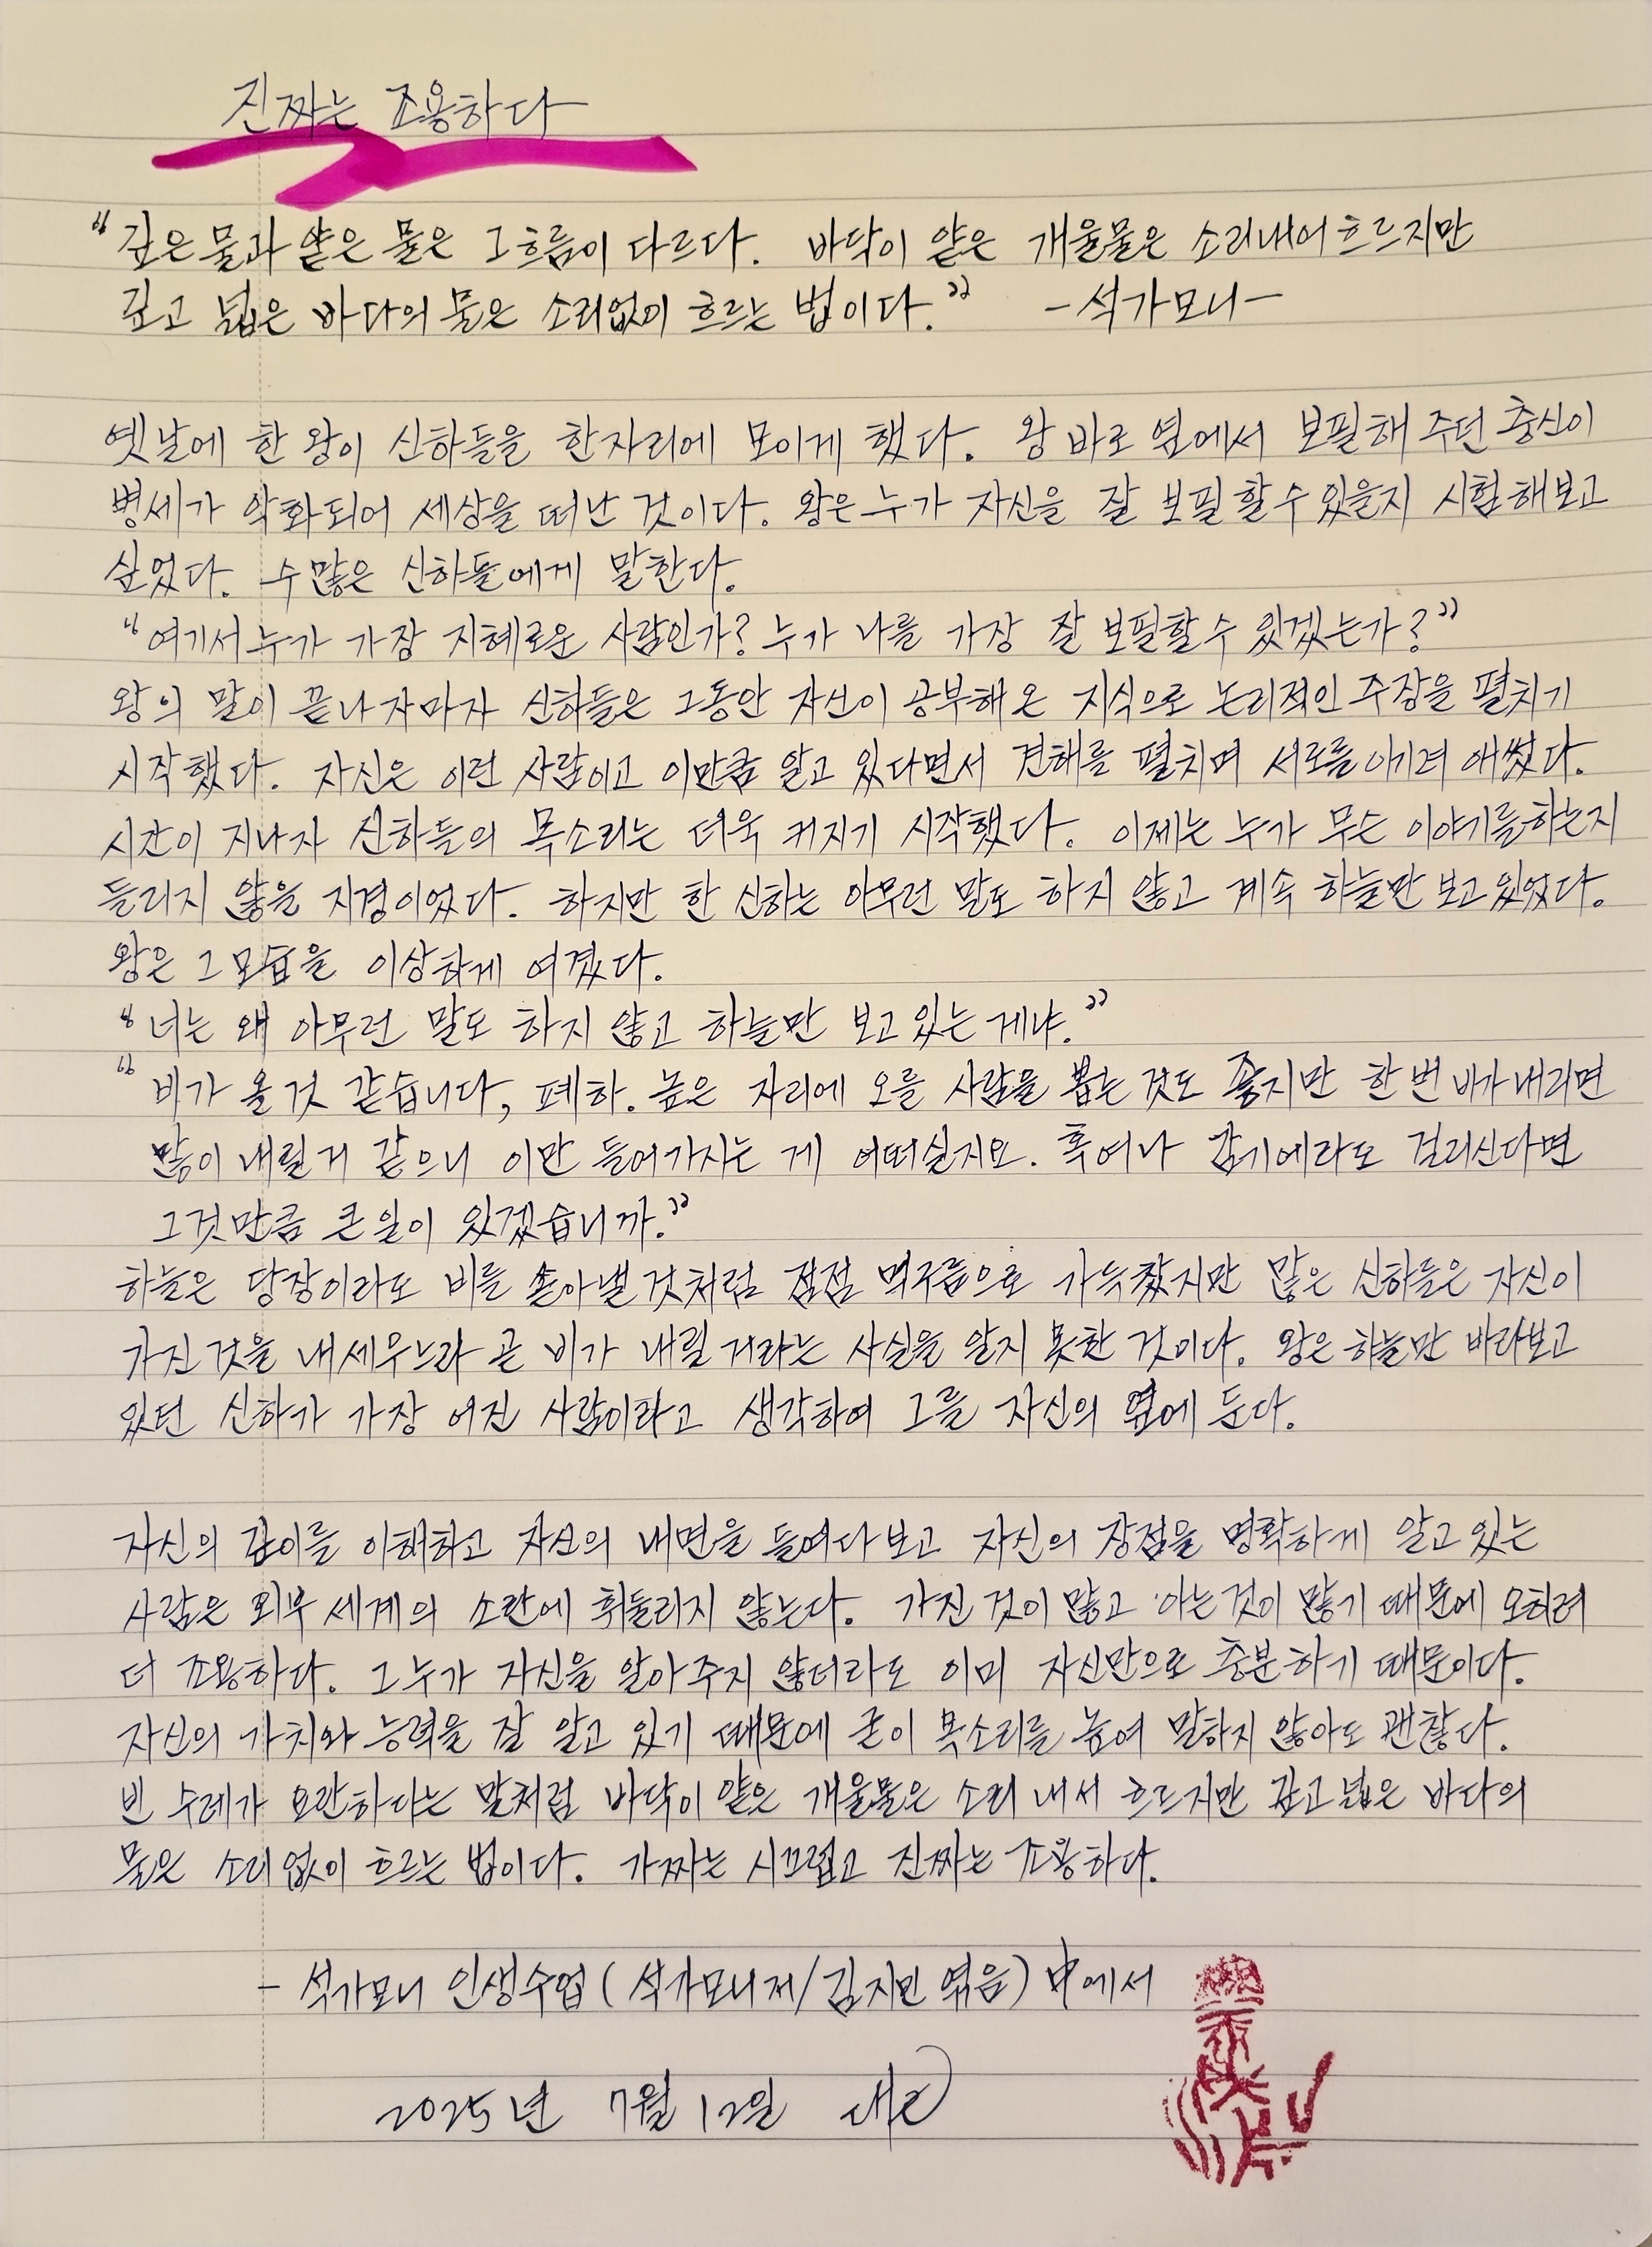 진짜는 조용하다
"깊은 물과 얕은 물은 그 흐름이 다르다. 바닥이 얕은 개울물은 소리내어 흐르지만
깊고 넓은 바다의 물은 소리없이 흐르는 법이다." -석가모니-
옛날에 한 왕이 신하들을 한자리에 모이게 했다. 왕 바로 옆에서 보필해 주던 충신이
병세가 악화되어 세상을 떠난 것이다. 왕은 누가 자신을 잘 보필할 수 있을지 시험해보고
싶었다. 수많은 신하들에게 말한다.
"여기서 누가 가장 지혜로운 사람인가? 누가 나를 가장 잘 보필할 수 있겠는가?"
왕의 말이 끝나자마자 신하들은 그동안 자신이 공부해 온 지식으로 논리적인 주장을 펼치기
시작했다. 자신은 이런 사람이고 이만큼 알고 있다면서 견해를 펼치며 서로를 이기려 애썼다.
시간이 지나자 신하들의 목소리는 더욱 커지기 시작했다. 이제는 누가 무슨 이야기를 하는지
들리지 않을 지경이었다. 하지만 한 신하는 아무런 말도 하지 않고 계속 하늘만 보고 있었다.
왕은 그 모습을 이상하게 여겼다.
"너는 왜 아무런 말도 하지 않고 하늘만 보고 있는 게냐."
"비가 올 것 같습니다, 폐하. 높은 자리에 오를 사람을 뽑는 것도 좋지만 한 번 비가 내리면
많이 내릴 거 같으니 이만 들어가시는 게 어떠실지요. 혹여나 감기에라도 걸리신다면
그것만큼 큰 일이 있겠습니까."
하늘은 당장이라도 비를 쏟아낼 것처럼 점점 먹구름으로 가득찼지만 많은 신하들은 자신이
가진 것을 내세우느라 곧 비가 내릴 거라는 사실을 알지 못한 것이다. 왕은 하늘만 바라보고
있던 신하가 가장 어진 사람이라고 생각하여 그를 자신의 옆에 둔다.
자신의 깊이를 이해하고 자신의 내면을 들여다보고 자신의 장점을 명확하게 알고 있는
사람은 외부 세계의 소란에 휘둘리지 않는다. 가진 것이 많고 아는 것이 많기 때문에 오히려
더 조용하다. 그 누가 자신을 알아 주지 않더라도 이미 자신만으로 충분하기 때문이다.
자신의 가치와 능력을 잘 알고 있기 때문에 굳이 목소리를 높여 말하지 않아도 괜찮다.
빈 수레가 요란하다는 말처럼 바닥이 얕은 개울물은 소리 내서 흐르지만 깊고 넓은 바다의
물은 소리 없이 흐르는 법이다. 가짜는 시끄럽고 진짜는 조용하다.
- 석가모니 인생수업 (석가모니 저/김지민 엮음) 中에서
2025년 7월 12일